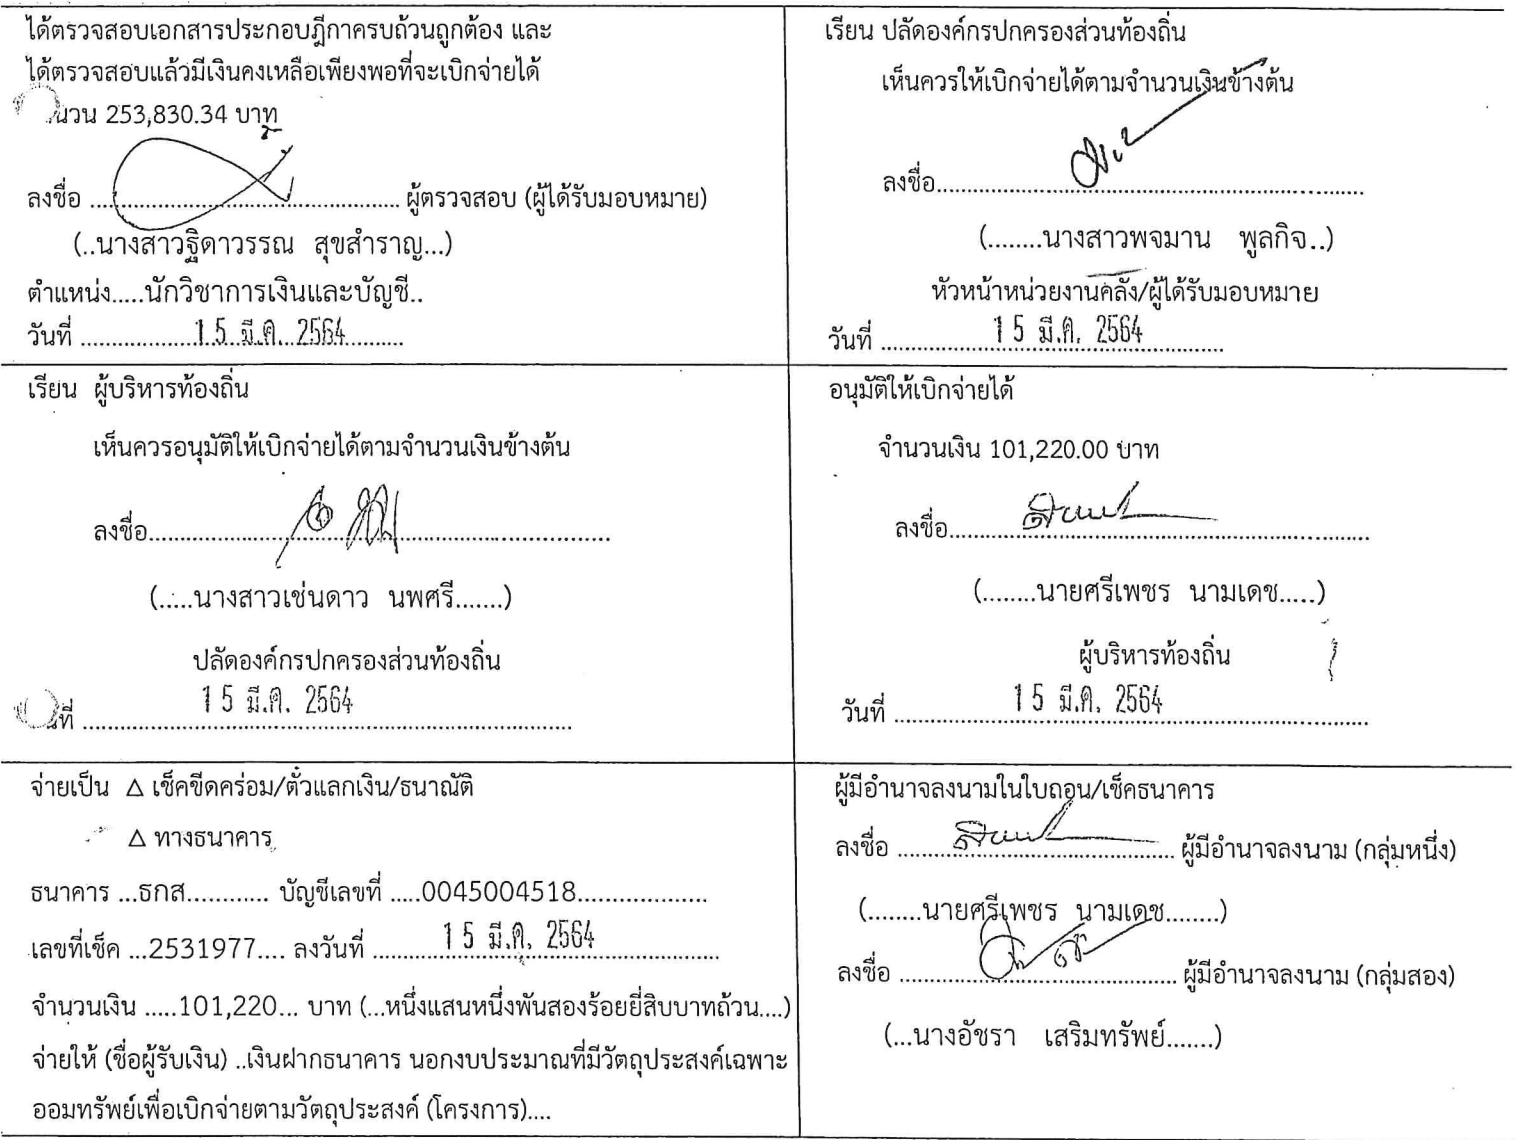 ได้ตรวจสอบเอกสารประกอบฎีกาครบถ้วนถูกต้อง และ
ได้ตรวจสอบแล้วมีเงินคงเหลือเพียงพอที่จะเบิกจ่ายได้
นวน 253,830.34 บาท
ลงชื่อ ............................................. ผู้ตรวจสอบ (ผู้ได้รับมอบหมาย)
(..นางสาวฐิดาวรรณ สุขสำราญ...)
ตำแหน่ง.....นักวิชาการเงินและบัญชี..
วันที่ .................15 มี.ค. 2564.........
เรียน ปลัดองค์กรปกครองส่วนท้องถิ่น
เห็นควรให้เบิกจ่ายได้ตามจำนวนเงินข้างต้น
ลงชื่อ..............................................................
(........นางสาวพจมาน พูลกิจ..)
หัวหน้าหน่วยงานคลัง/ผู้ได้รับมอบหมาย
วันที่ ................15 มี.ค. 2564................
เรียน ผู้บริหารท้องถิ่น
เห็นควรอนุมัติให้เบิกจ่ายได้ตามจำนวนเงินข้างต้น
ลงชื่อ..................................................................
(.....นางสาวเช่นดาว นพศรี.......)
ปลัดองค์กรปกครองส่วนท้องถิ่น
ที่ ................15 มี.ค. 2564................................
อนุมัติให้เบิกจ่ายได้
จำนวนเงิน 101,220.00 บาท
ลงชื่อ.............................................................
(........นายศรีเพชร นามเดช.....)
ผู้บริหารท้องถิ่น
วันที่ ................15 มี.ค. 2564................................
จ่ายเป็น Δ เช็คขีดคร่อม/ตั๋วแลกเงิน/ธนาณัติ
Δ ทางธนาคาร
ธนาคาร ...ธกส............ บัญชีเลขที่ .....0045004518...................
เลขที่เช็ค ...2531977.... ลงวันที่ ..........15 มี.ค. 2564..................
จำนวนเงิน .....101,220... บาท (...หนึ่งแสนหนึ่งพันสองร้อยยี่สิบบาทถ้วน....)
จ่ายให้ (ชื่อผู้รับเงิน) ..เงินฝากธนาคาร นอกงบประมาณที่มีวัตถุประสงค์เฉพาะ
ออมทรัพย์เพื่อเบิกจ่ายตามวัตถุประสงค์ (โครงการ)....
ผู้มีอำนาจลงนามในใบถอน/เช็คธนาคาร
ลงชื่อ ......................................... ผู้มีอำนาจลงนาม (กลุ่มหนึ่ง)
(........นายศรีเพชร นามเดช........)
ลงชื่อ ......................................... ผู้มีอำนาจลงนาม (กลุ่มสอง)
(...นางอัชรา เสริมทรัพย์.......)